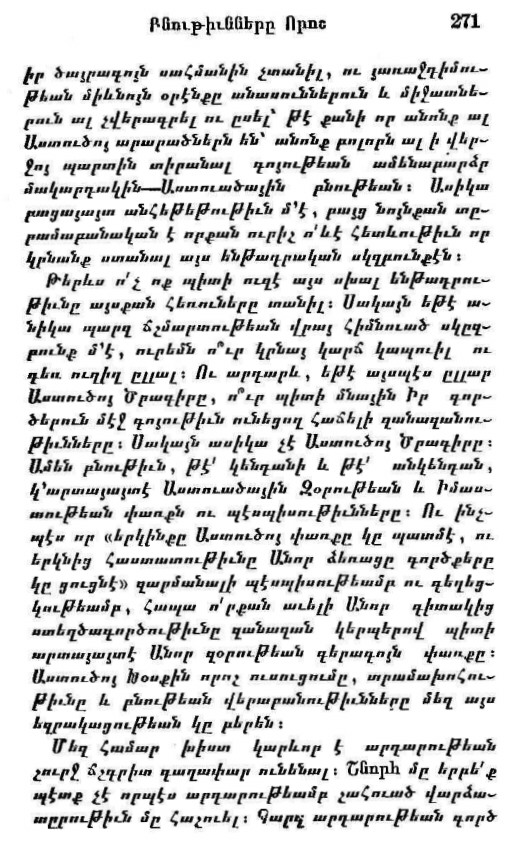 Բնութիւնները Որոշ 271
իր ծայրագոյն սահմանին չտանիլ, ու յառաջդիմու-
թեան միևնոյն օրէնքը անասուններուն և միջատնե-
րուն ալ չվերագրել ու ըսել՝ թէ քանի որ անոնք ալ
Աստուծոյ արարածներն են՝ անոնք բոլորն ալ ի վեր-
ջոյ պարտին տիրանալ գոյութեան ամենաբարձր
մակարդակին—Աստուածային բնութեան։ Ասիկա
բացայայտ անհեթեթութիւն մ'է, բայց նոյնքան տը-
րամաբանական է որքան ուրիշ ո'ևէ հետևութիւն որ
կրնանք ստանալ այս ենթադրական սկզբունքէն։
Թերևս ո՛չ ոք պիտի ուզէ այս սխալ ենթադրու-
թիւնը այսքան հեռուները տանիլ։ Սակայն եթէ ա-
նիկա պարզ ճշմարտութեան վրայ հիմնուած սկըզ-
բունք մ'է, ուրեմն ո՞ւր կրնայ կարճ կապուիլ ու
դեռ ուղիղ ըլլալ։ Ու արդարև, եթէ այսպէս ըլլար
Աստուծոյ Ծրագիրը, ո՞ւր պիտի մնային Իր գոր-
ծերուն մէջ գոյութիւն ունեցող հաճելի զանազանու-
թիւնները։ Սակայն ասիկա չէ Աստուծոյ Ծրագիրը։
Ամեն բնութիւն, թէ՛ կենդանի և թէ՛ անկենդան,
կ'արտայայտէ Աստուածային Զօրութեան և Իմաս-
տութեան փառքն ու պէսպիսութիւնները։ Ու ինչ-
պէս որ «երկինքը Աստուծոյ փառքը կը պատմէ, ու
երկնից հաստատութիւնը Անոր ձեռացը գործքերը
կը ցուցնէ» զարմանալի պէսպիսութեամբ ու գեղեց-
կութեամբ, հապա ո՛րքան աւելի Անոր գիտակից
ստեղծագործութիւնը զանազան կերպերով պիտի
արտայայտէ Անոր զօրութեան գերագոյն փառքը։
Աստուծոյ Խօսքին որոշ ուսուցումը, տրամախոհու-
թիւնը և բնութեան վերաբանութիւնները մեզ այս
եզրակացութեան կը բերեն։
Մեզ համար խիստ կարևոր է արդարութեան
շուրջ ճշգրիտ գաղափար ունենալ։ Շնորհ մը երբե՛ք
պէտք չէ որպէս արդարութեամբ շահուած վարձա-
տըրութիւն մը հաշուել։ Պարզ արդարութեան գործ